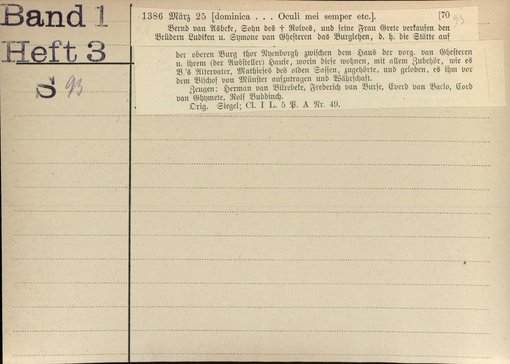 Band 1
Heft 3
S 93
1386 März 25 [dominica . . . Oculi mei semper etc.]. [70
93
Bernd van Asbeke, Sohn des † Rolves, und seine Frau Grete verkaufen den
Brüdern Ludiken u. Symone van Ghesteren das Burglehen, d. h. die Stätte auf
der oberen Burg thor Nyenborgh zwischen dem Haus der vorg. van Ghesteren
u. ihrem (der Aussteller) Hause, worin diese wohnen, mit allem Zubehör, wie es
B.'s Altervater, Mathieses des olden Sassen, zugehörte, und geloben, es ihm vor
dem Bischof von Münster aufzutragen und Währschaft.
Zeugen: Herman van Bilrebeke, Frederich van Burse, Everd van Baclo, Cord
van Ghymete, Rolf Buddinch.
Orig. Siegel; Cl. I L. 5 P. A Nr. 49.